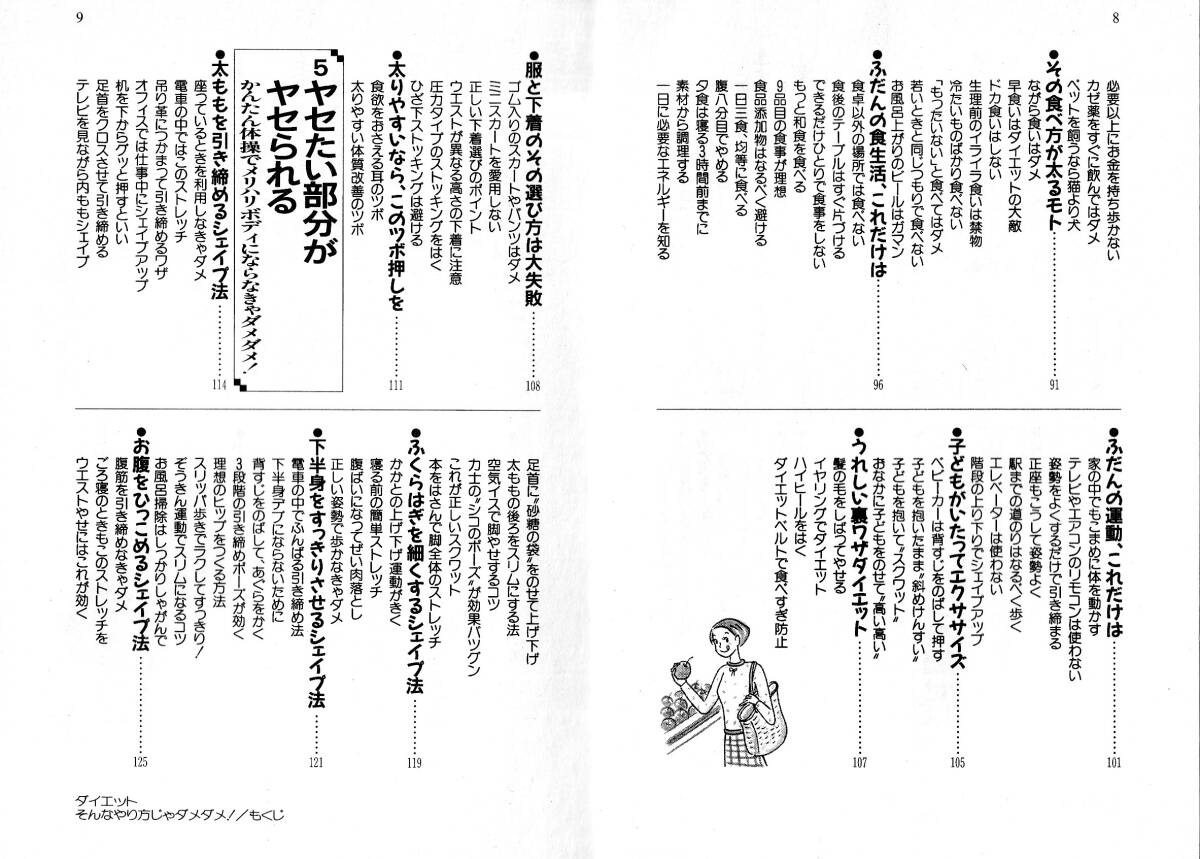 8
必要以上にお金を持ち歩かない
カゼ薬をすぐに飲んではダメ
ペットを飼うなら猫より犬
●その食べ方が太るモト……91
ながら食いはダメ
早食いはダイエットの大敵
ドカ食いはしない
生理前のイライラ食いは禁物
冷たいものばかり食べない
“もったいない”と食べてはダメ
若いときと同じつもりで食べない
お風呂上がりのビールはガマン
●ふだんの食生活、これだけは……96
食卓以外の場所では食べない
食後のテーブルはすぐ片づける
できるだけひとりで食事をしない
もっと和食を食べる
9品目の食事が理想
食品添加物はなるべく避ける
一日三食、均等に食べる
腹八分目でやめる
夕食は寝る3時間前までに
素材から調理する
一日に必要なエネルギーを知る
●ふだんの運動、これだけは……101
家の中でもこまめに体を動かす
テレビやエアコンのリモコンは使わない
姿勢をよくするだけで引き締まる
正座もこうして姿勢よく
駅までの道のりはなるべく歩く
エレベーターは使わない
階段の上り下りでシェイプアップ
●子どもがいたってエクササイズ……105
ベビーカーは背すじをのばして押す
子どもを抱いたまま“斜めけんすい”
子どもを抱いて“スクワット”
おなかに子どもをのせて“高い高い”
●うれしい裏ワザダイエット……107
髪の毛をしばってやせる
イヤリングでダイエット
ハイヒールをはく
ダイエットベルトで食べすぎ防止
9
●服と下着のその選び方は大失敗……108
ゴム入りのスカートやパンツはダメ
ミニスカートを愛用しない
正しい下着選びのポイント
ウエストが異なる高さの下着に注意
圧力タイプのストッキングをはく
ひざ下ストッキングは避ける
●太りやすいなら、このツボ押しを……111
食欲をおさえる耳のツボ
太りやすい体質改善のツボ
5
ヤセたい部分が
ヤセられる
かんたん体操でメリハリボディにならなきゃダメダメ!
●太ももを引き締めるシェイプ法……114
座っているときを利用しなきゃダメ
電車の中ではこのストレッチ
吊り革につかまって引き締めるワザ
オフィスでは仕事中にシェイプアップ
机を下からグッと押すといい
足首をクロスさせて引き締める
テレビを見ながら内ももシェイプ
足首に“砂糖の袋”をのせて上げ下げ
太ももの後ろをスリムにする法
空気イスで脚やせするコツ
力士の“シコのポーズ”が効果バツグン
これが正しいスクワット
本をはさんで脚全体のストレッチ
●ふくらはぎを細くするシェイプ法……119
かかとの上げ下げ運動がきく
寝る前の簡単ストレッチ
腹ばいになってぜい肉落とし
正しい姿勢で歩かなきゃダメ
●下半身をすっきりさせるシェイプ法……121
電車の中でふんばる引き締め法
下半身デブにならないために
背すじをのばして、あぐらをかく
3段階の引き締めポーズが効く
理想のヒップをつくる方法
スリッパ歩きでラクしてすっきり!
ぞうきん運動でスリムになるコツ
お風呂掃除はしっかりしゃがんで
●お腹をひっこめるシェイプ法……125
腹筋を引き締めなきゃダメ
ごろ寝のときもこのストレッチを
ウエストやせにはこれが効く
ダイエット
そんなやり方じゃダメダメ!/もくじ